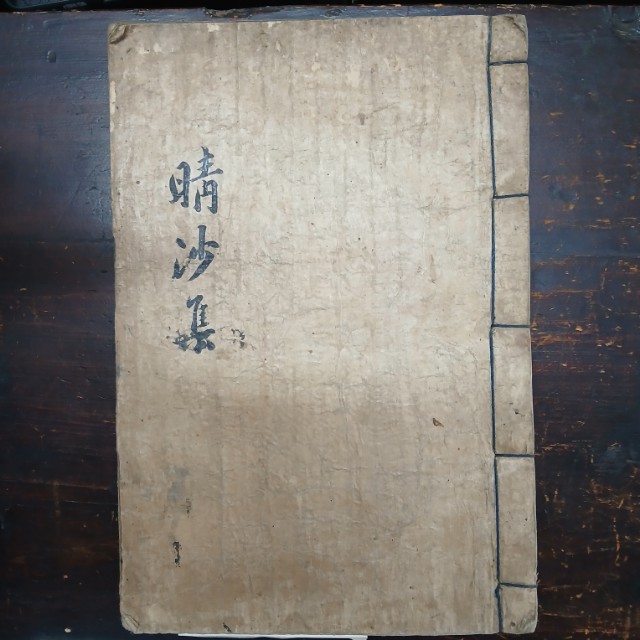 晴沙集